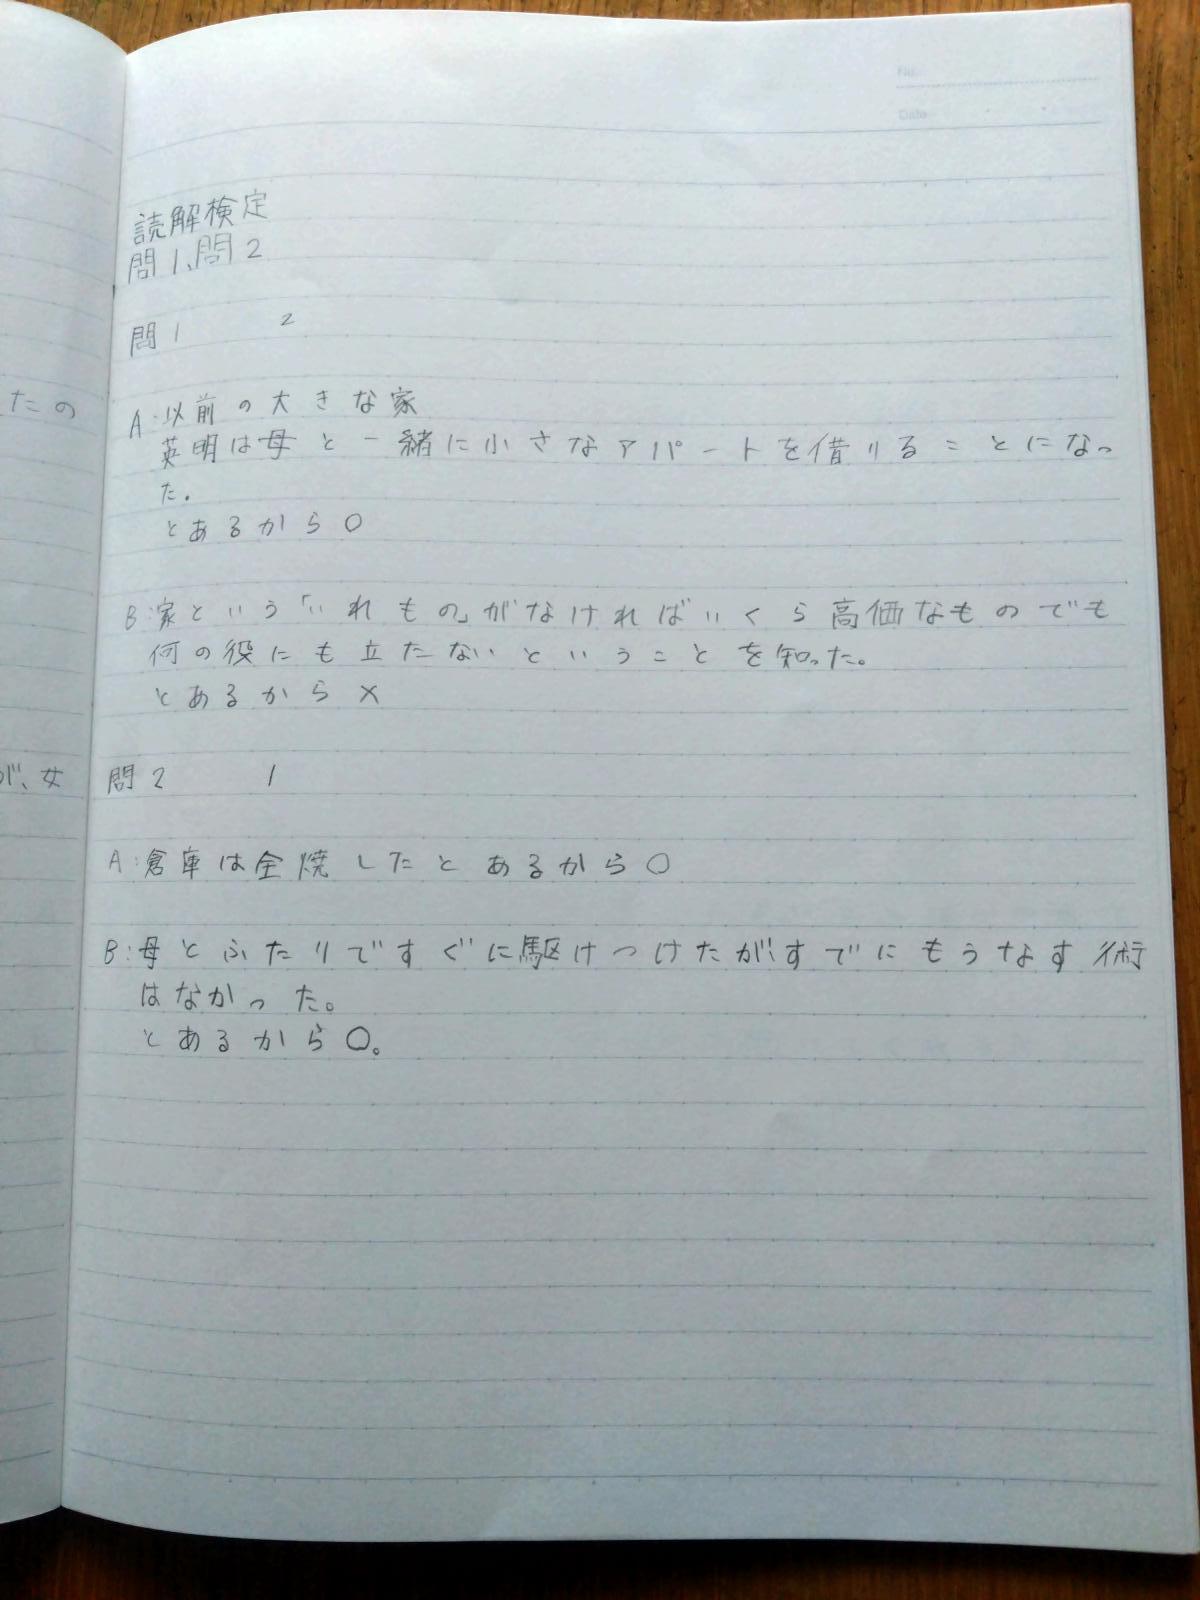 No.
Date
読解検定
問1、問2
問1 2
A:以前の大きな家
英明は母と一緒に小さなアパートを借りることになっ
た。
とあるから○
B:家という「いれもの」がなければいくら高価なものでも
何の役にも立たないということを知った。
とあるから×
問2 1
A:倉庫は全焼したとあるから○
B:母とふたりですぐに駆けつけたが、すでにもうなす術
はなかった。
とあるから○。
たの
が、女